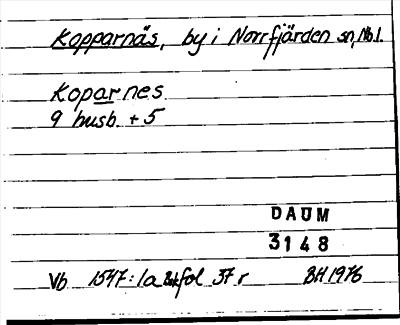 Kopparnäs, by i Norrfjärden sn, Nb l.
Koparnes
9 husb. + 5
DAUM
3148
Vb 1547:1a Bskfol 37 r BH 1976